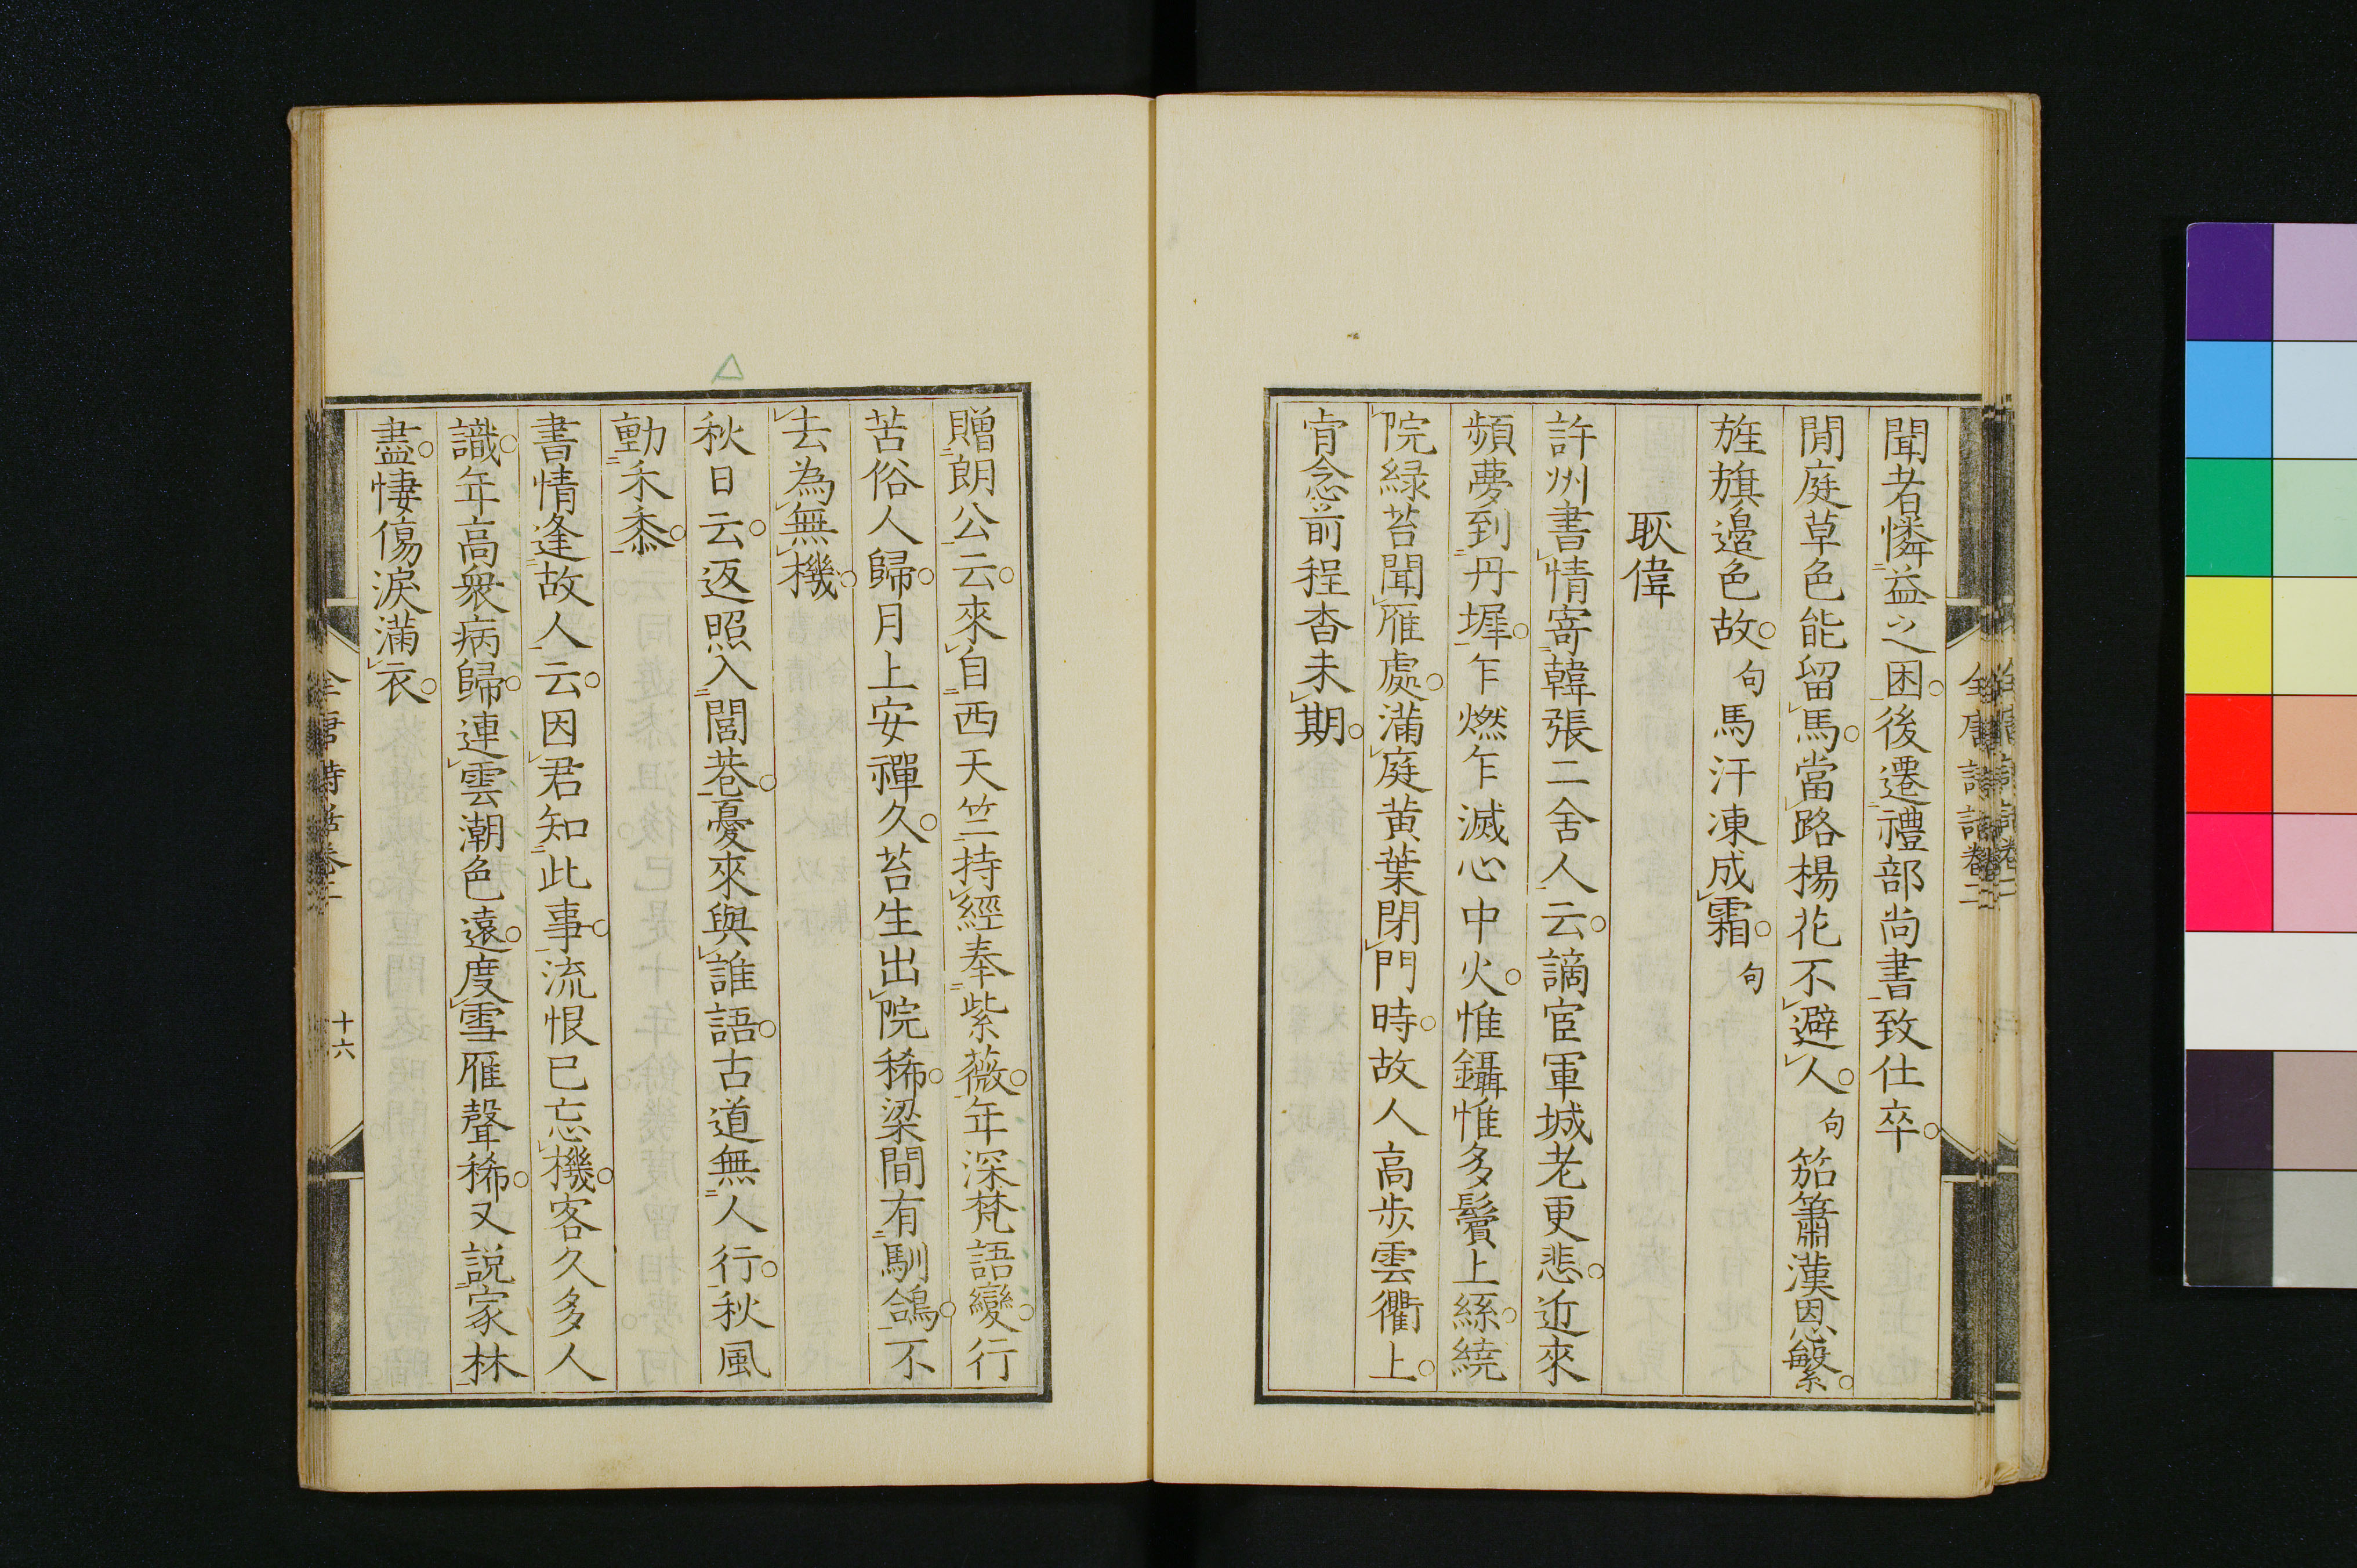 聞者憐益之困後遷禮部尚書致仕卒
閒庭草色能留馬當路楊花不避人句笳簫漢恩繁
旌旗邉色故句馬汗凍成霜句
耿偉
許州書情寄韓張二舍人云謫宦軍城老更悲近來
頻夢到丹墀乍燃乍滅心中火惟鑷惟多鬢上絲繞
院緑苔聞雁處滿庭黄葉閉門時故人高步雲衢上
肯念前程杳未期
贈朗公云來自西天竺持經奉紫薇年深梵語變行
苦俗人歸月上安禪久苔生出院稀梁間有馴鴿不
去為無機
秋日云返照入閭巷憂來與誰語古道無人行秋風
動禾黍
書情逢故人云因君知此事流恨已忘機客久多人
識年高衆病歸連雲潮色遠度雪雁聲稀又説家林
盡悽傷淚滿衣
全唐詩話卷二
十六